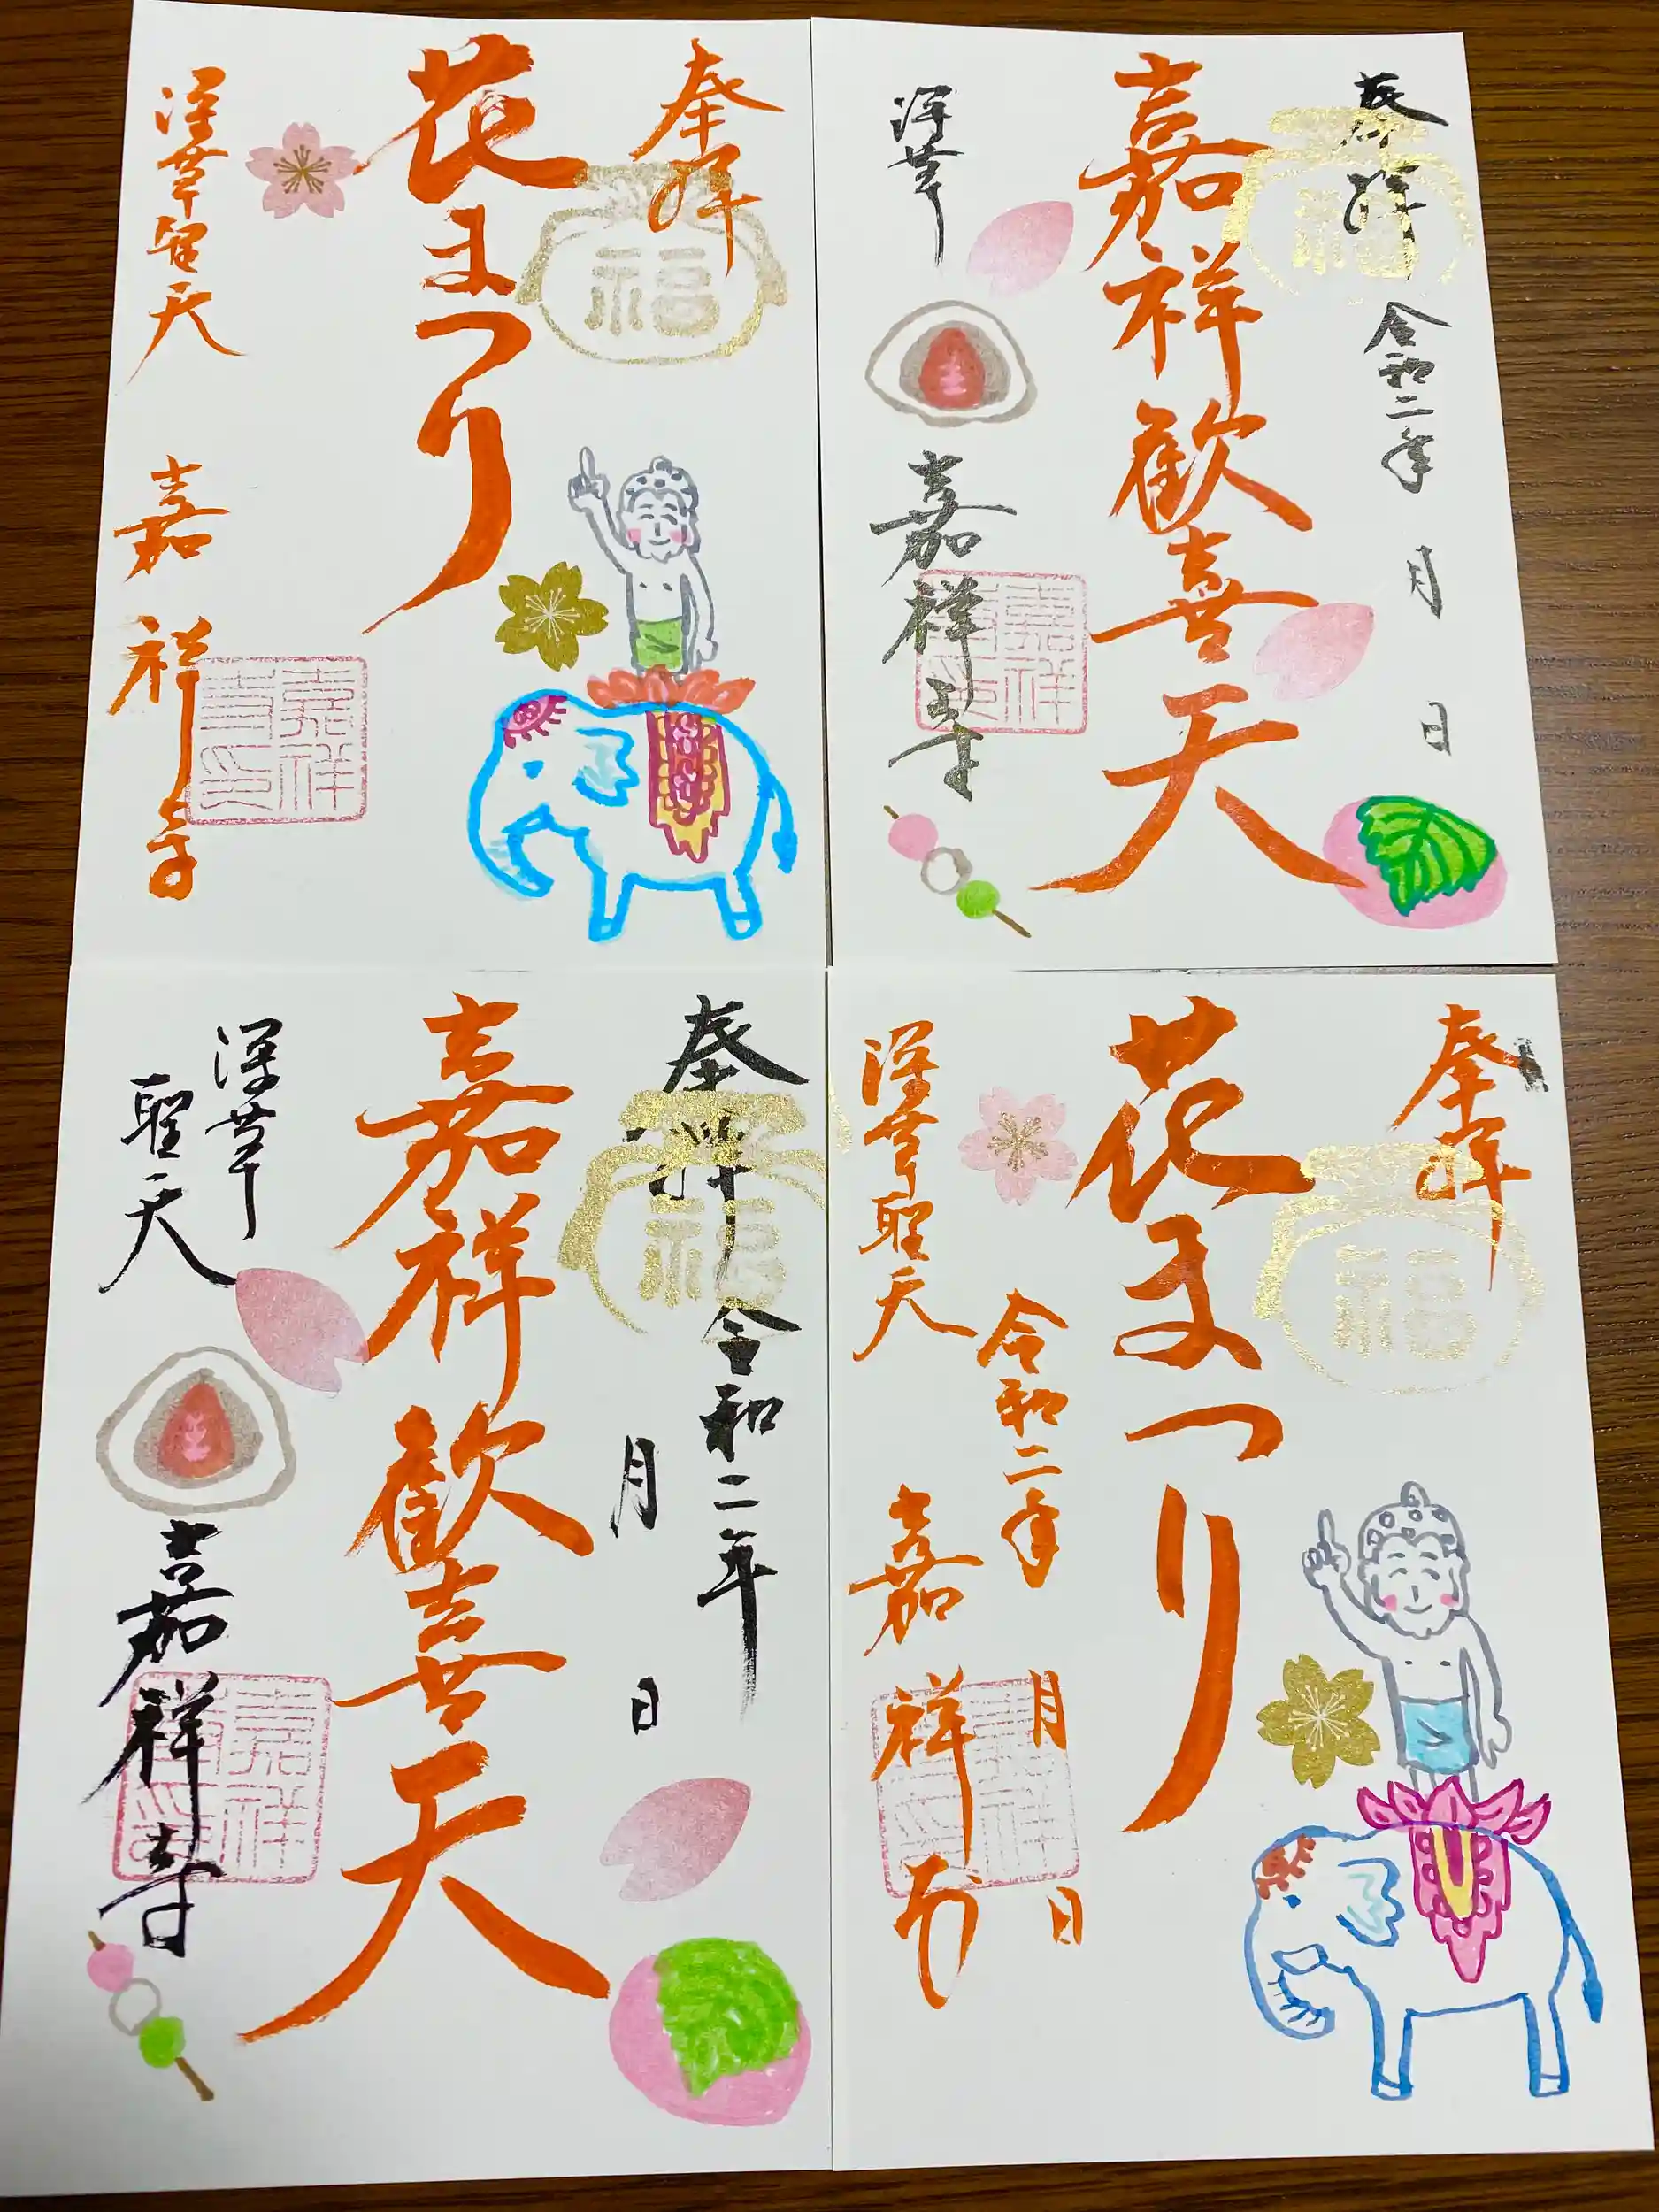 奉拝
花まつり
福
深草聖天
嘉祥寺
嘉祥
奉拝
令和二年
月
日
福
嘉祥歓喜天
深草
嘉祥寺
嘉祥
奉拝
令和二年
月
日
福
嘉祥歓喜天
深草
聖天
嘉祥寺
嘉祥
奉拝
福
花まつり
令和二年
月
日
深草聖天
嘉祥寺
嘉祥